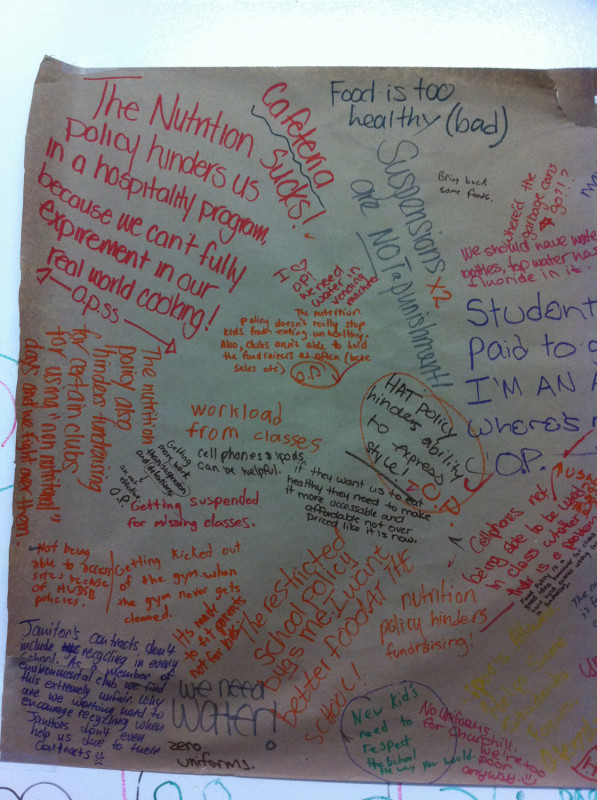 The Nutrition
policy hinders us
in a hospitality program,
because we can't fully
expirement in our
real world cooking!
O.p.ss
Cafeteria
Sucks!
Food is too
healthy (bad)
Suspensions x2
are NOT a punishment!
Bring back
some foods.
where'd the
garbage cans
go?!?
We should have wate
bottles, tap water has
fluoride in it.
Student
Paid to
I'M AN A
where's
O.P.
I ♡
OP!
we need
water in
vending
machine
The nutrition
policy doesn't really stop
kids from eating unhealthy.
Also, clubs aren't able to hold
the fundraisers as often (bake
sales etc)
O.P.
The nutrition
policy also
hinders fundraising
for certain clubs
for using "non nutritional"
workload
from classes
cell phones & ipods
can be helpful.
HAT policy
hinders ability
to express
style!
O.P.
Getting
more
than suspension
O.P.
Getting suspended
for missing classes.
if they want us to eat
healthy they need to make
it more accessable and
affordable not over
Priced like it is now.
Cellphones not
being able to be used
in class
Not being
able to access
sites because
OF HWDSB
policies.
Getting kicked out
of the gym when
the gym never gets
cleaned.
It's made
to fit parents
not for kids.
The restricted
school policy
bugs me. I want
better food AT THE
SCHOOL!
nutrition
policy hinders
fundraising!
Janitor's contracts don't
include recycling in every
school. As a member of
environmental club we find
this extremely unfair. Why
are we working hard to
encourage recycling when
Janitors don't even
help us due to their
contracts
we need
Water!
zero
uniforms.
New kid's
need to
respect
the school
the way you would.
No uniforms
for Churchill.
we're too
poor
anyway.